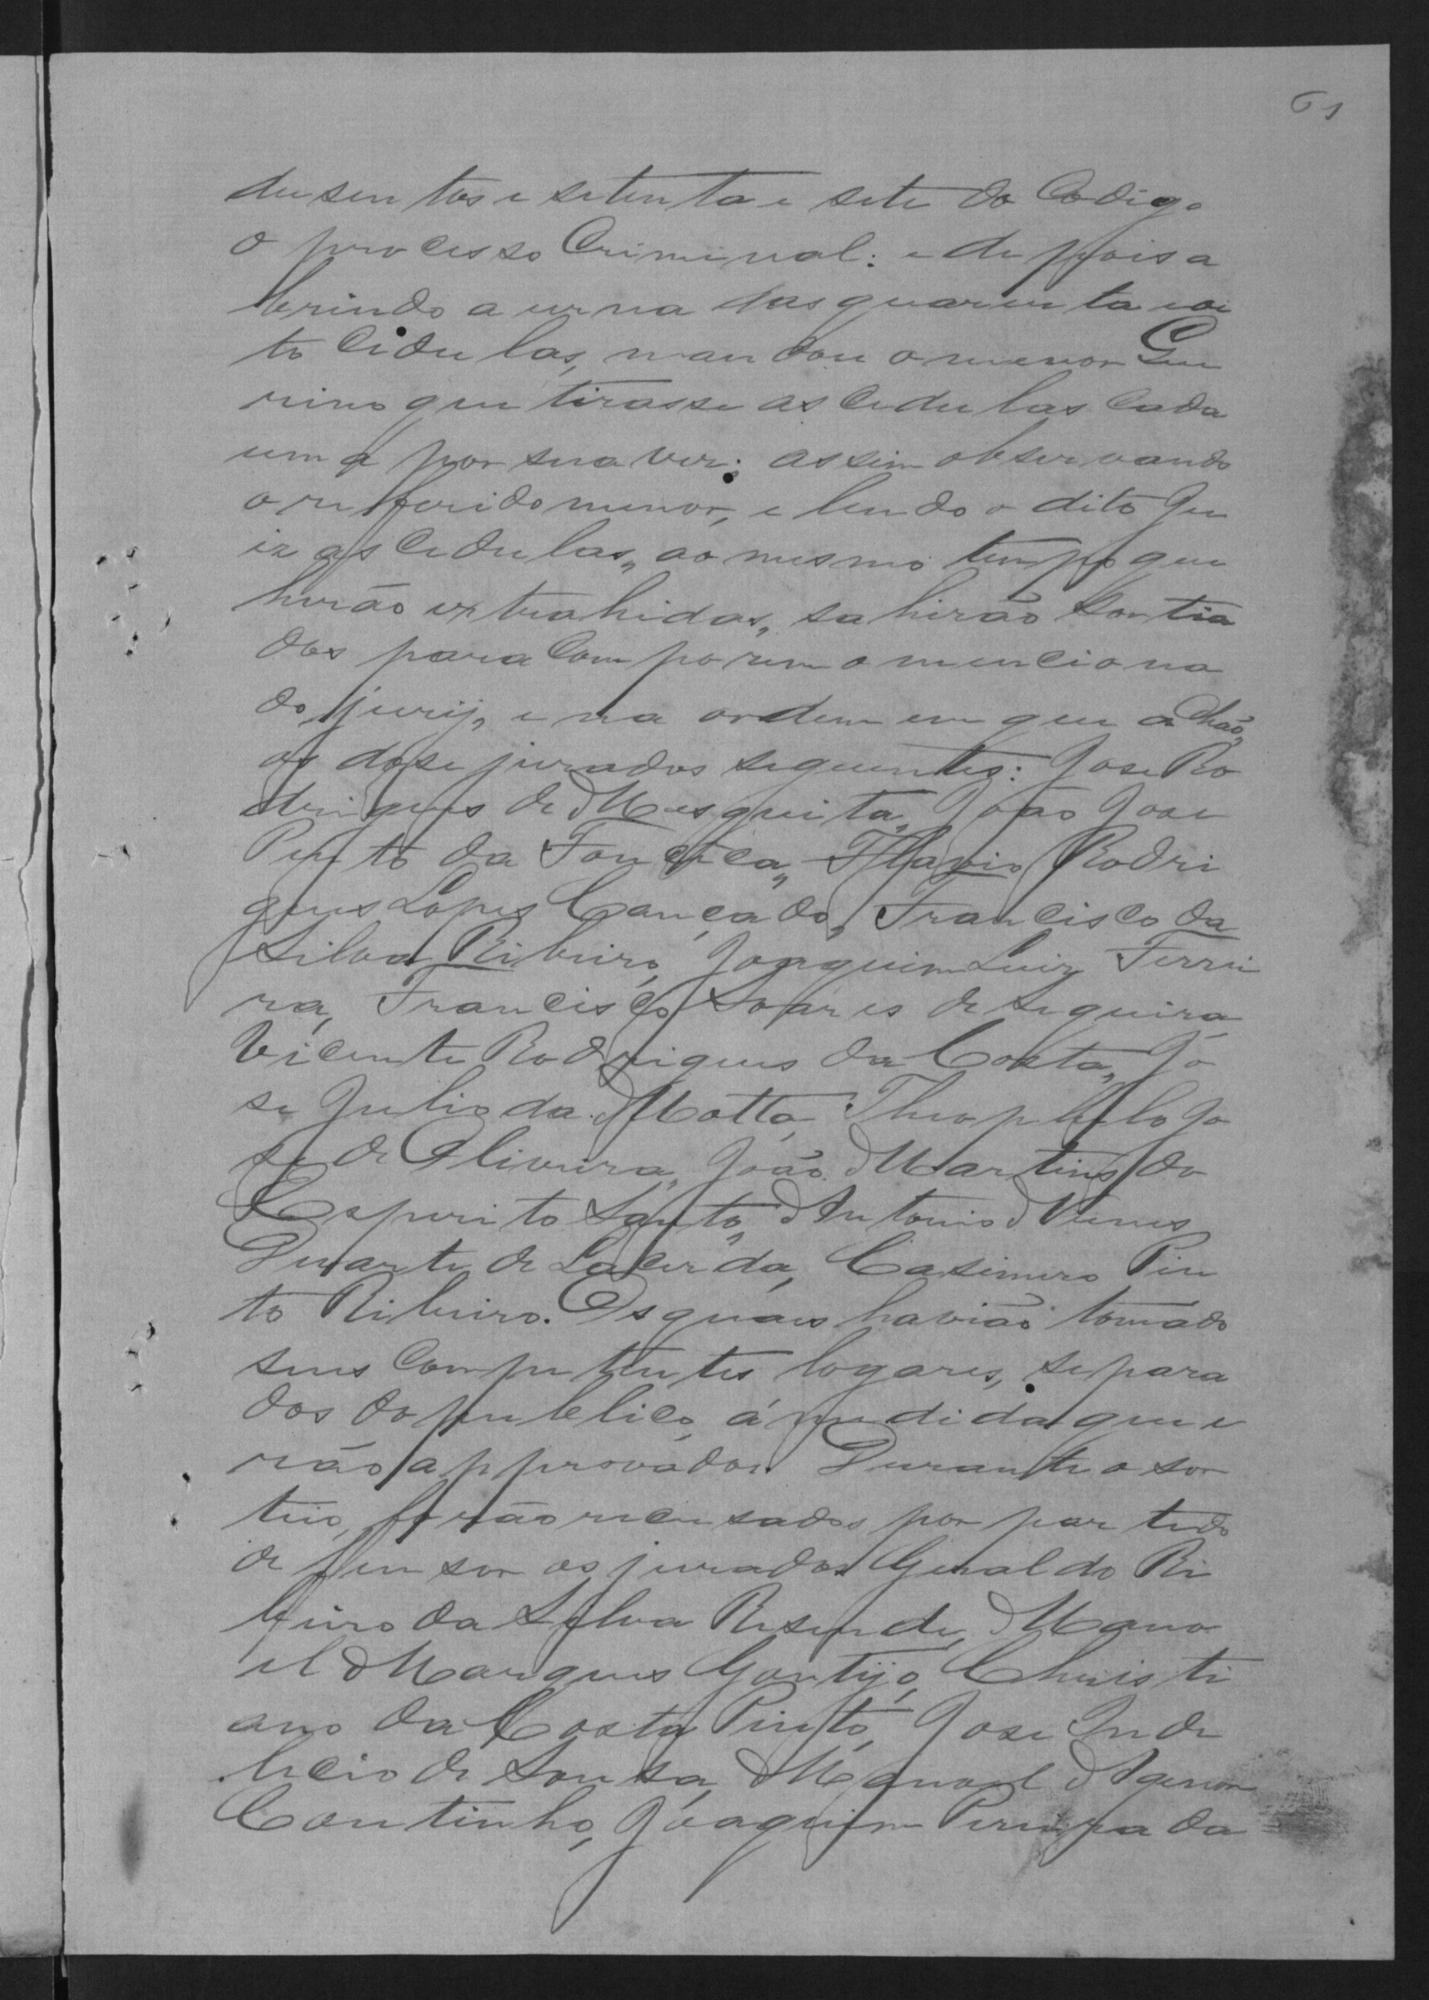 61
dusentos e setenta e sete do Codigo
o processo Criminal: e depois a
brindo a urna das quarenta e oi
to cedulas, mandou o menor Gue
rino que tirasse as cedulas cada
uma por sua vez; assim observando
o refferido menor, e lendo o dito Ju
iz as cedulas, ao mesmo tempo que
herão extrahidas, sahirão sortia
dos para comporem o menciona
do jury, e na ordem em que achão,
os dose jurados seguentes: Jose Ro
drigues de Mesquita, João Jose
Pinto da Fonceca, Flavio Rodri
gues Lopes Cançado, Francisco da
Silva Ribeiro, Joaquim Luiz Ferrei
ra, Francisco Soares de Sequeira,
Vicente Rodrigues da Costa, Jo
se Julio da Motta, Theophilo Jo
se de Oliveira, João Martins do
Esperito Santo, Antonio Nunes
Duarte de Lacerda, Casimero Pin
to Ribeiro. Os quaes havião tomado
seus competentes logares, separa
dos do publico, á medida que e
rão approvados. Durante o sor
teio, forão recusados por parte do
defensor os jurados Geraldo Ri
beiro da Silva Resende, Mano
el Marques Gontijo, Christi
ano da Costa Pinto, Jose Inde
lecio de Sousa, Manoel Agenor
Coutinho, Joaquim Pereira da